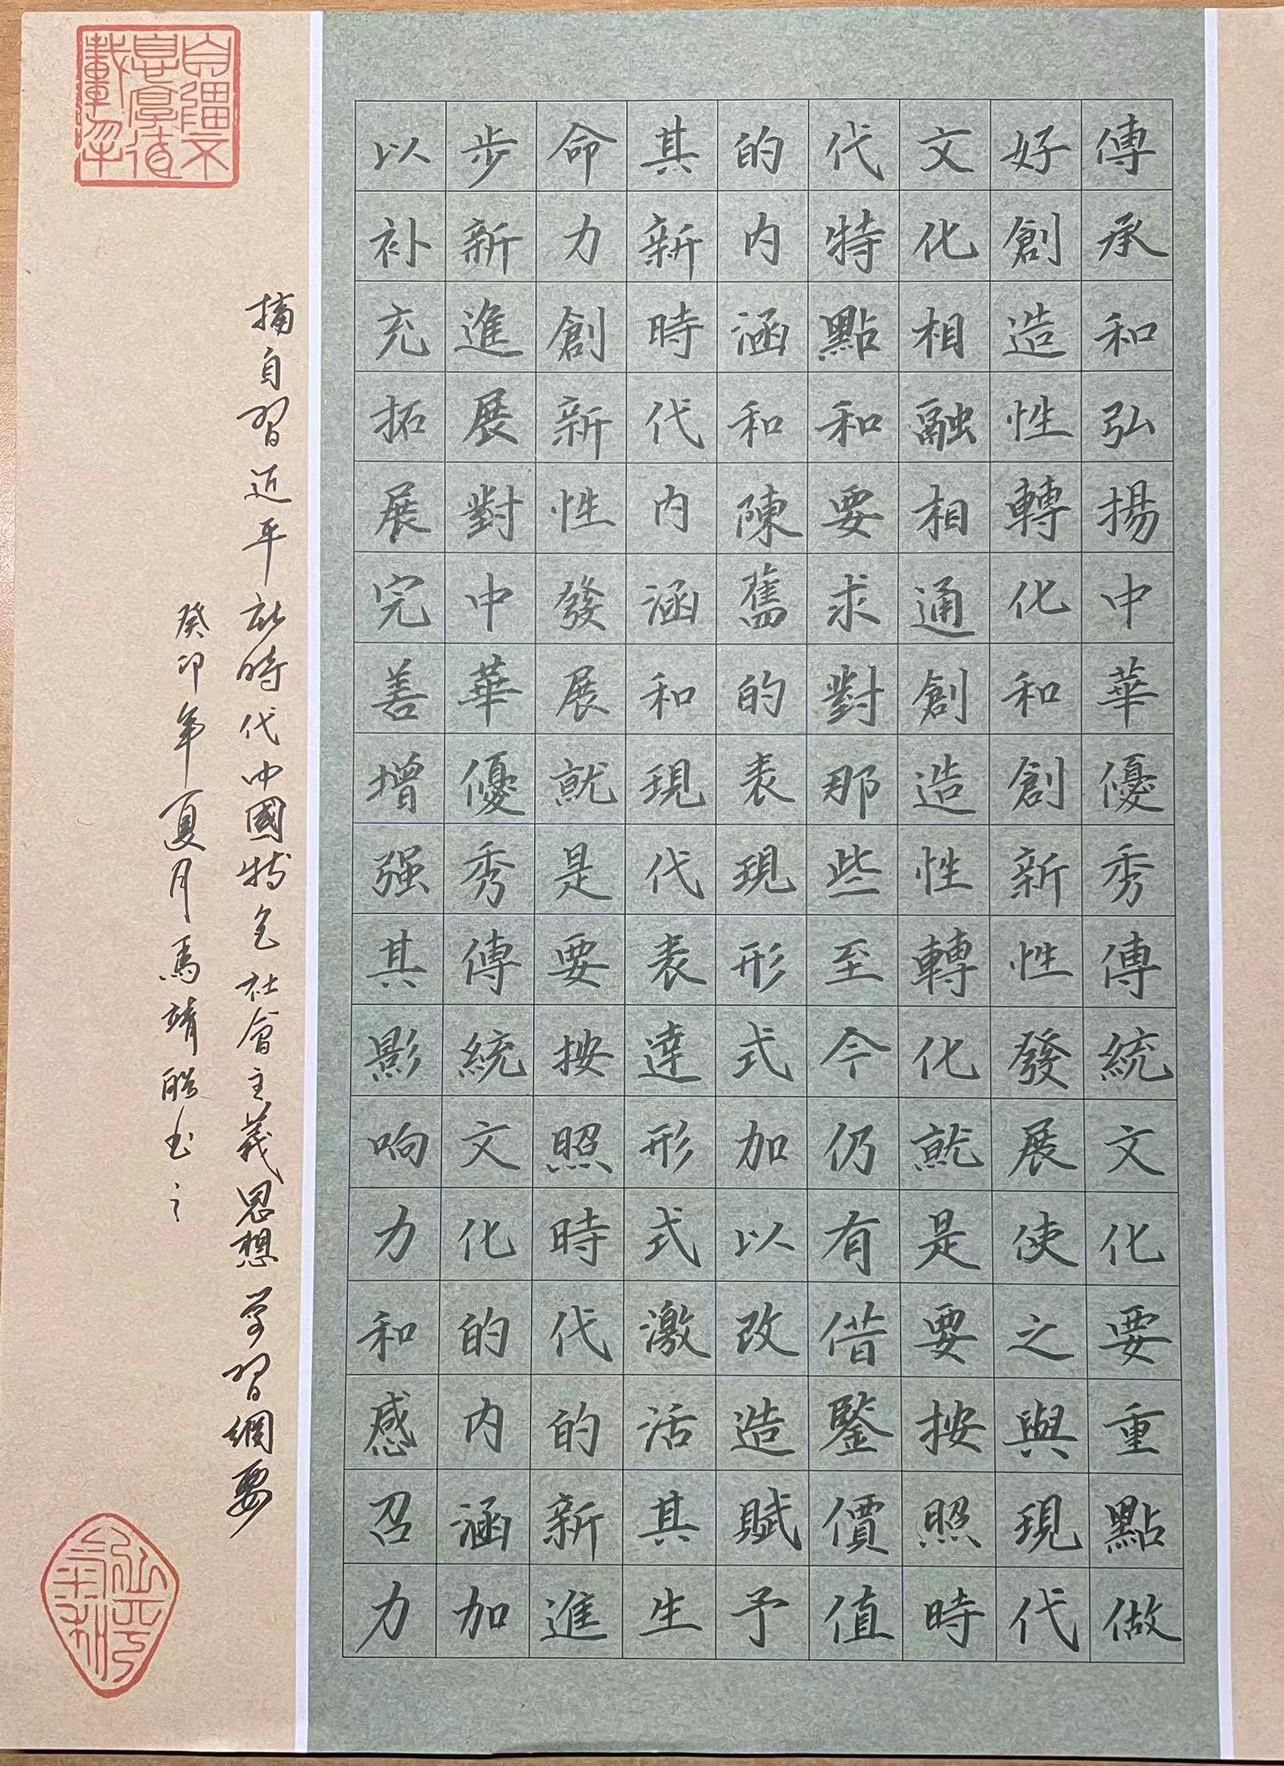 傳承和弘揚中華優秀傳統文化要重點做
好創造性轉化和創新性發展使之與現代
文化相融相通創造性轉化就是要按照時
代特點和要求對那些至今仍有借鑒價值
的内涵和陳舊的表現形式加以改造賦予
其新時代内涵和現代表達形式激活其生
命力創新性發展就是要按照時代的新進
步新進展對中華優秀傳統文化的内涵加
以补充拓展完善增强其影响力和感召力
摘自習近平新時代中國特色社會主義思想學習綱要
癸卯年夏月馬靖皓书之